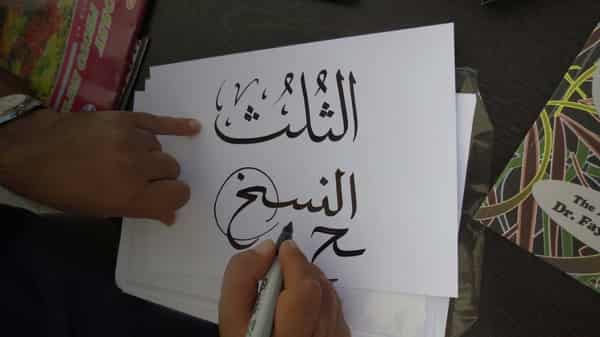 الثُلُث
النسخ
ح
The
Dr. Fay